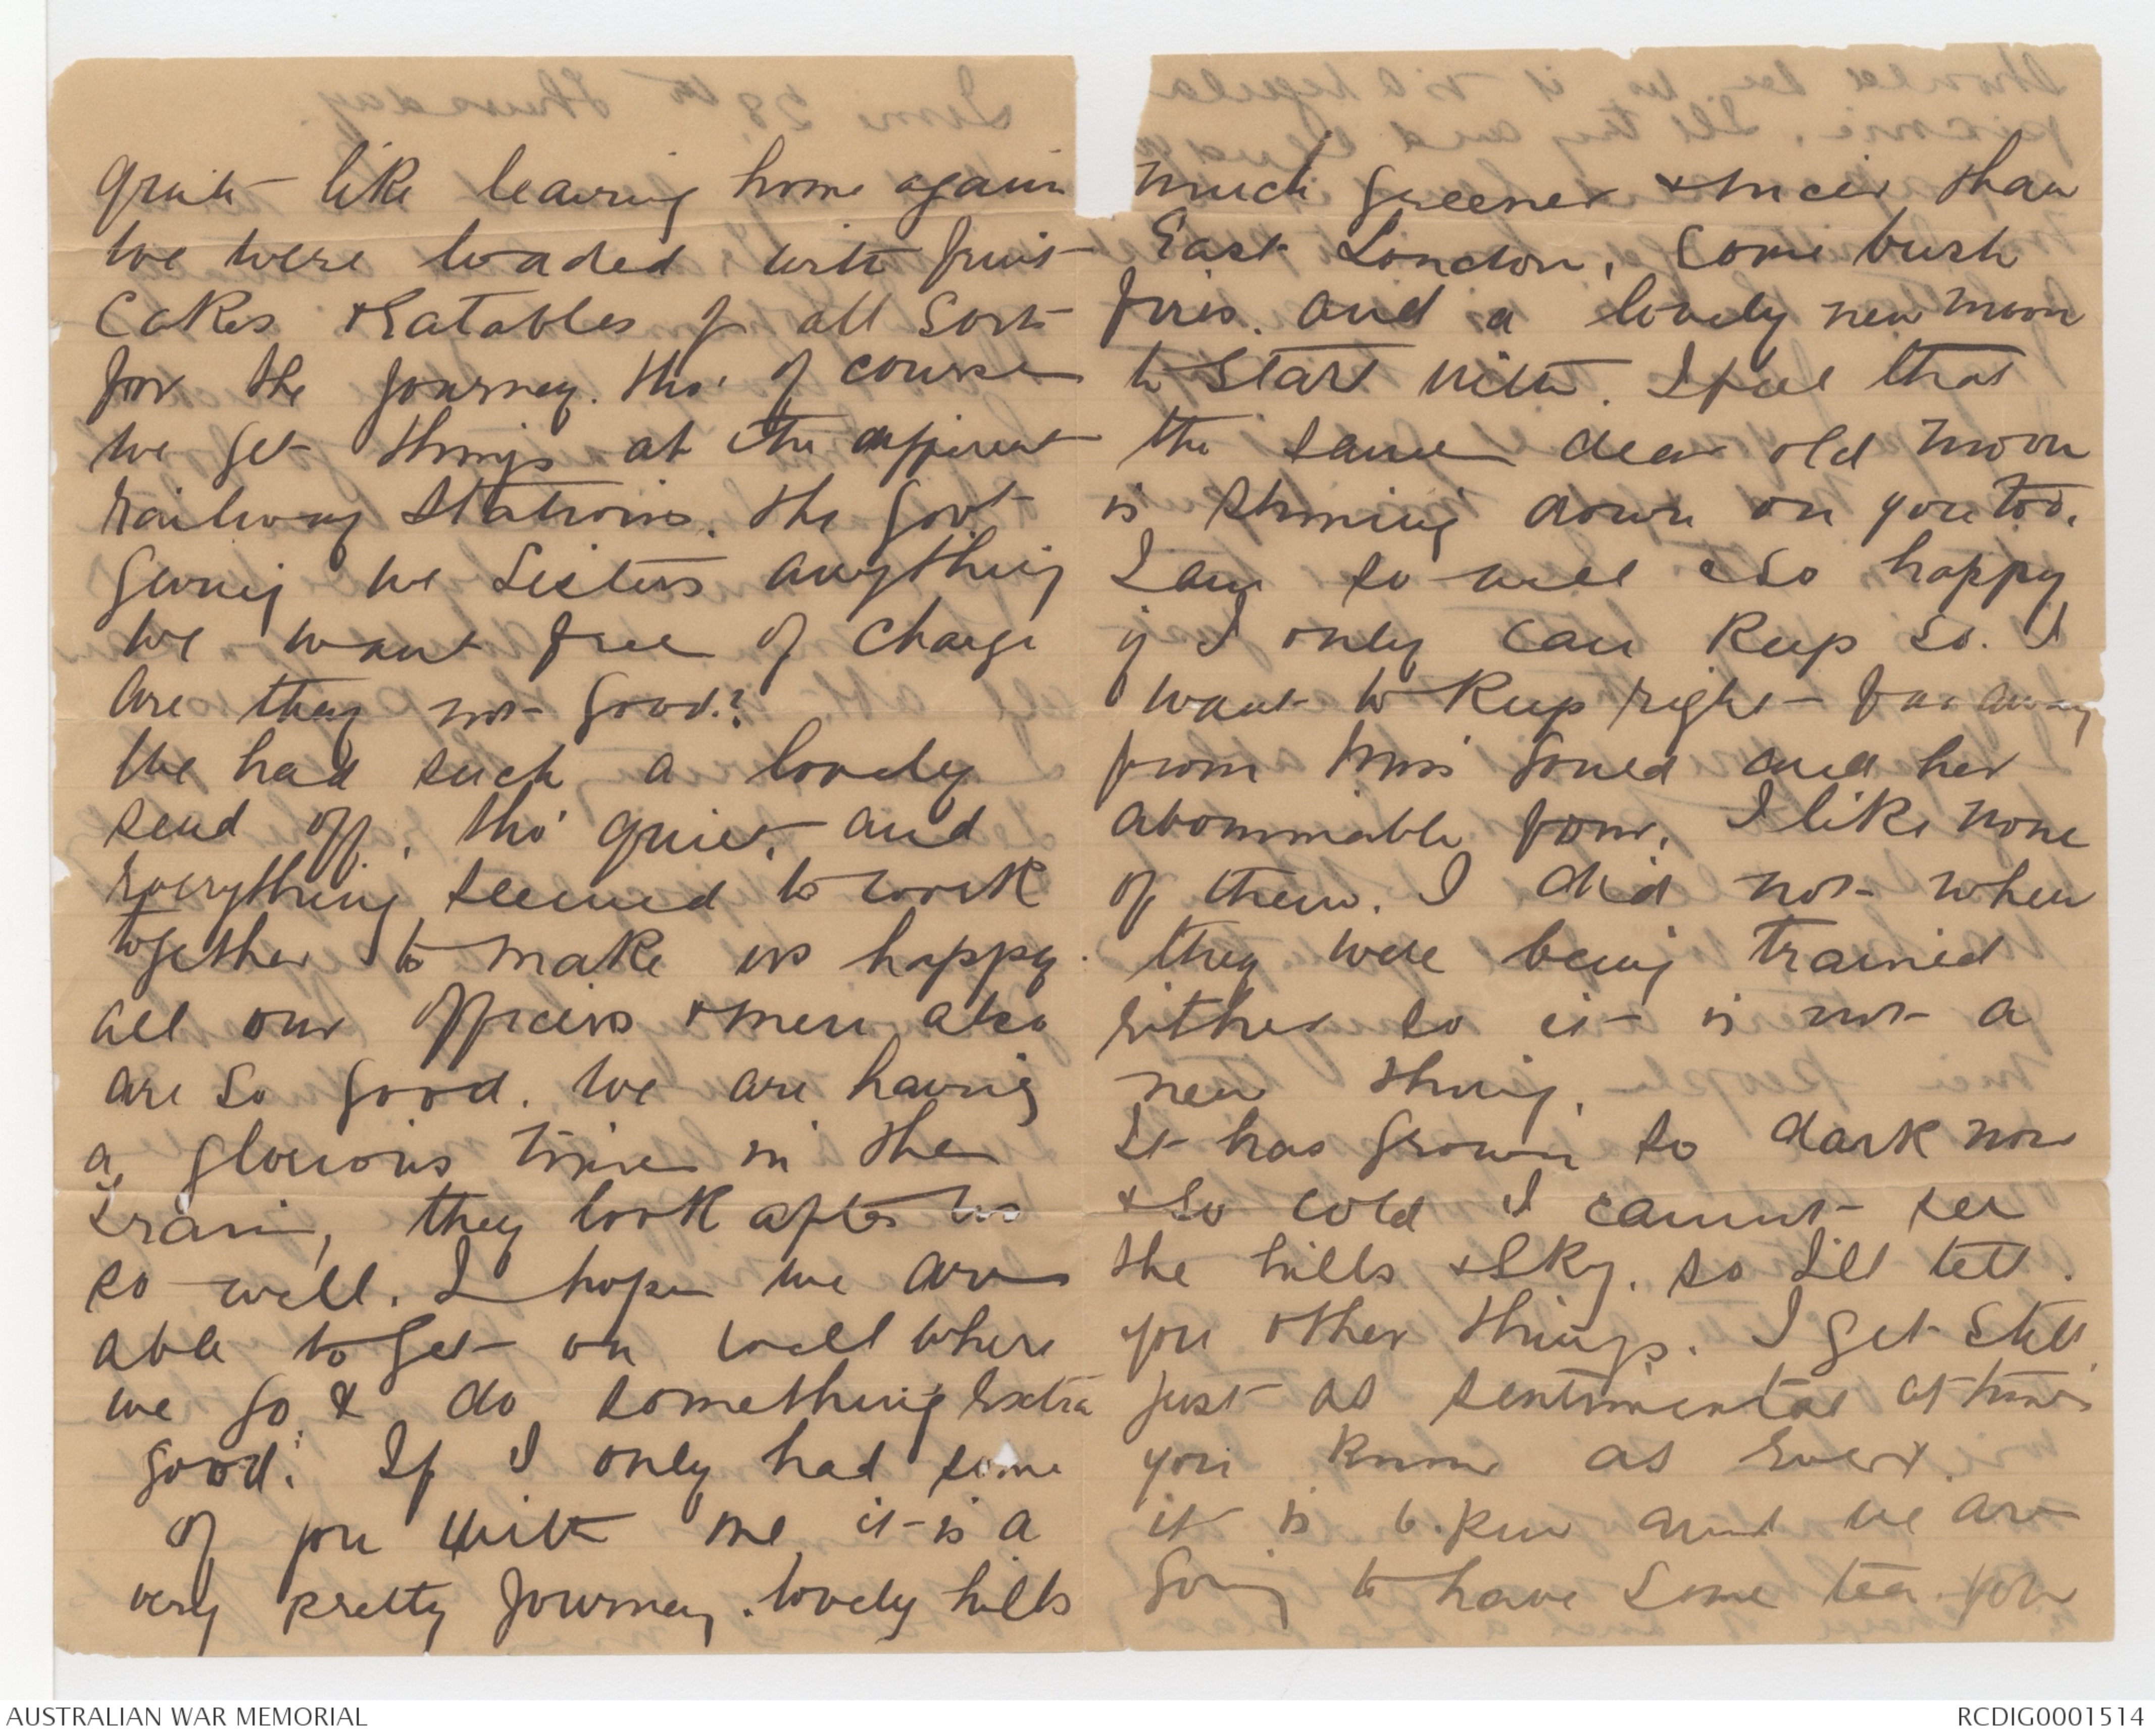 quite like leaving home again
We were loaded with fruit
Cakes & Eatables of all sorts
for the journey. tho' of course
we get things at the different
railway stations. the Govt
giving we Sisters anything
we want free of charge
are they not good?
We had such a lovely
send off, tho' quiet, and
Everything seemed to work
together to make us happy.
all our officers & men also
are so good. We are having
a glorious time in the
train, they look after us
so well. I hope we are
able to get on well where
we go & do something extra
good. If I only had some
of you with me it is a
very pretty journey. lovely hills
much greener & nicer than
East London, Some bush
fires. and a lovely new moon
to start with. I feel that
the same dear old moon
is shining down on you too.
I am so well & so happy
if I only can keep so. I
want to keep right far away
from Miss Gould and her
abominable four, I like none
of them. I did not when
they were being trained
either so it is not a
new thing.
It has grown so dark now
& so cold I cannot see
the hills & sky. so I'll tell
you other things. I get still
just as sentimental at times
you know as ever.
it is 6. pm and we are
going to have some tea. you
AUSTRALIAN WAR MEMORIAL
RCDIG0001514